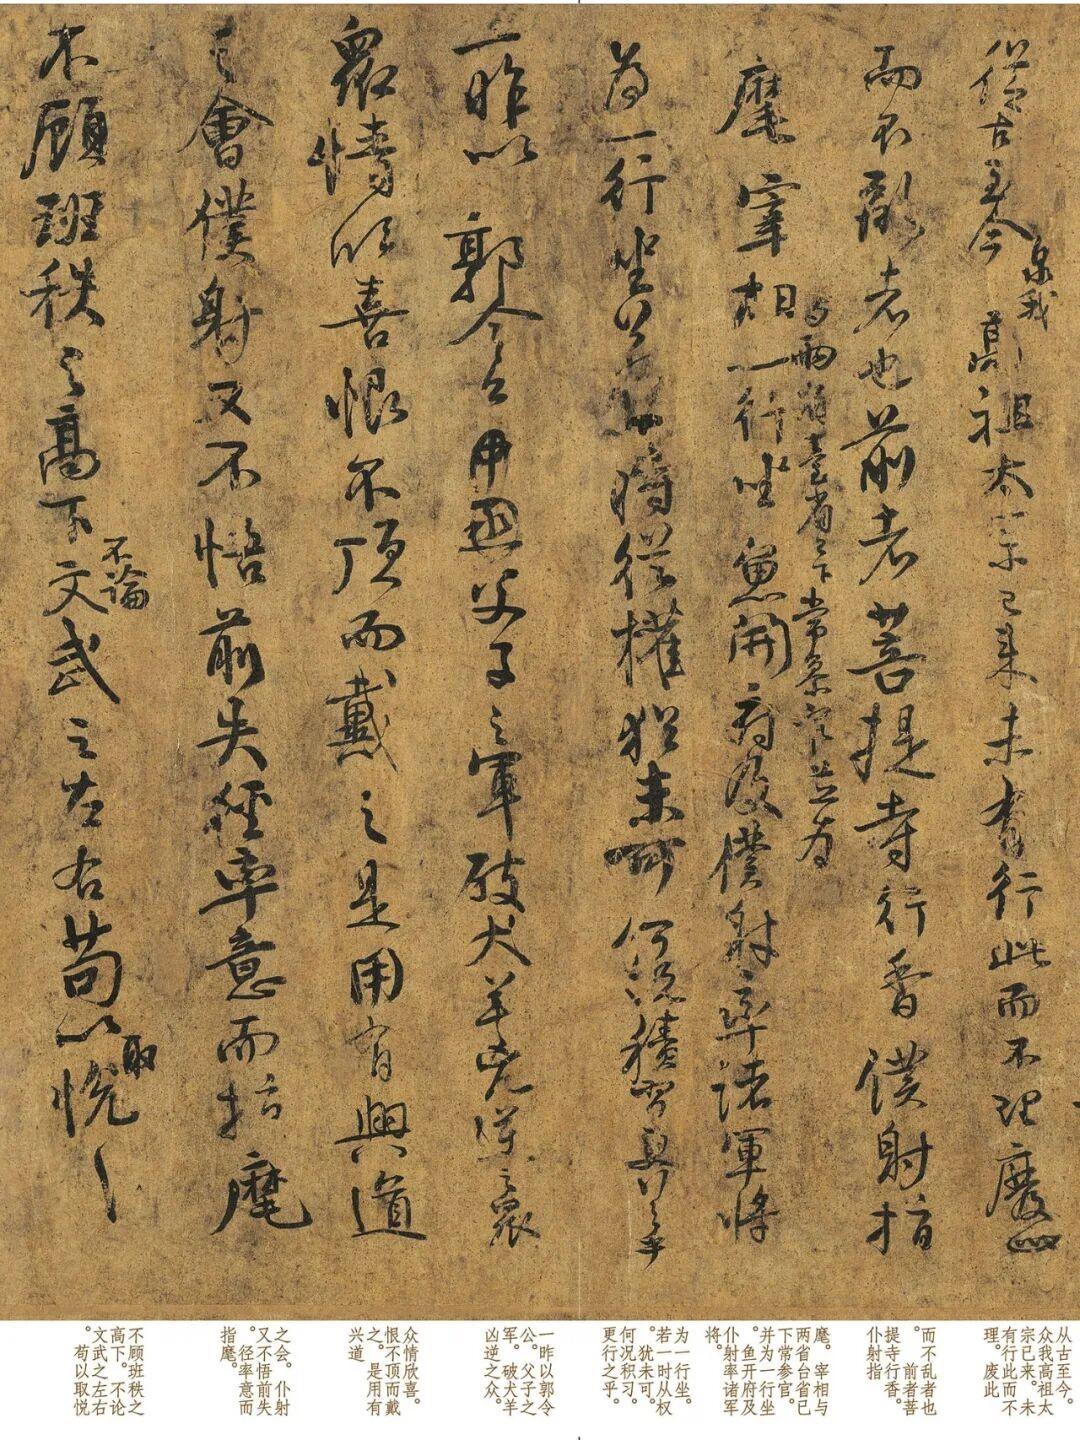 從古至今泉我高祖太宗已來未有行此而不理廢此
而不亂者也前者菩提寺行香僕射指
麾宰相與兩省臺省已下常參官並為一行坐魚開府及僕射率諸軍將
為一行坐若一時從權猶未可何況積習更行之乎
一昨以郭令公父子之軍破犬羊兇逆之眾
眾情欣喜恨不頂而戴之是用有興道
之會僕射又不悟前失徑率意而指麾
不顧班秩之高下不論文武之左右苟以取悅
从古至今。
众我高祖太
宗已来。未
有行此而不
理。废此
而不乱者也
。前者菩
提寺行香。
仆射指
麾。宰相与
两省台省已
下常参官。
并为一行坐
。鱼开府及
仆射率诸军
将。
为一行坐。
若一时从权
。犹未可。
何况积习。
更行之乎。
一昨以郭令
公。父子之
军。破犬羊
凶逆之众。
众情欣喜。
恨不顶而戴
之。是用有
兴道
之会。仆射
又不悟前失
。径率意而
指麾。
不顾班秩之
高下。不论
文武之左右
。苟以取悦